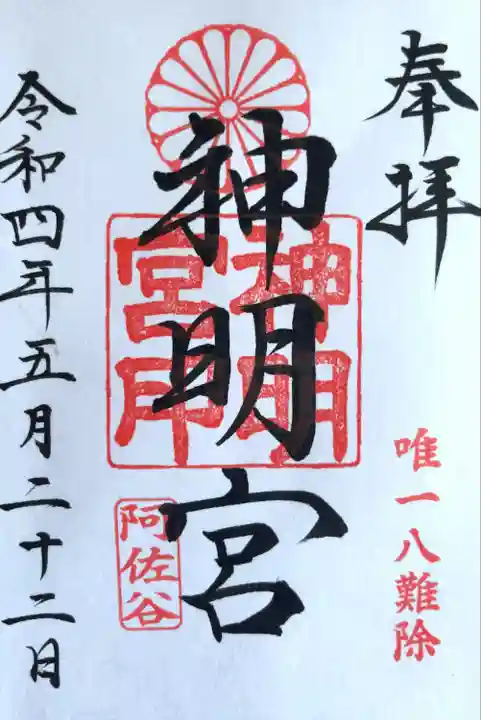 奉拝
唯一八難除
神明宮
神明宮印
阿佐谷
令和四年五月二十二日